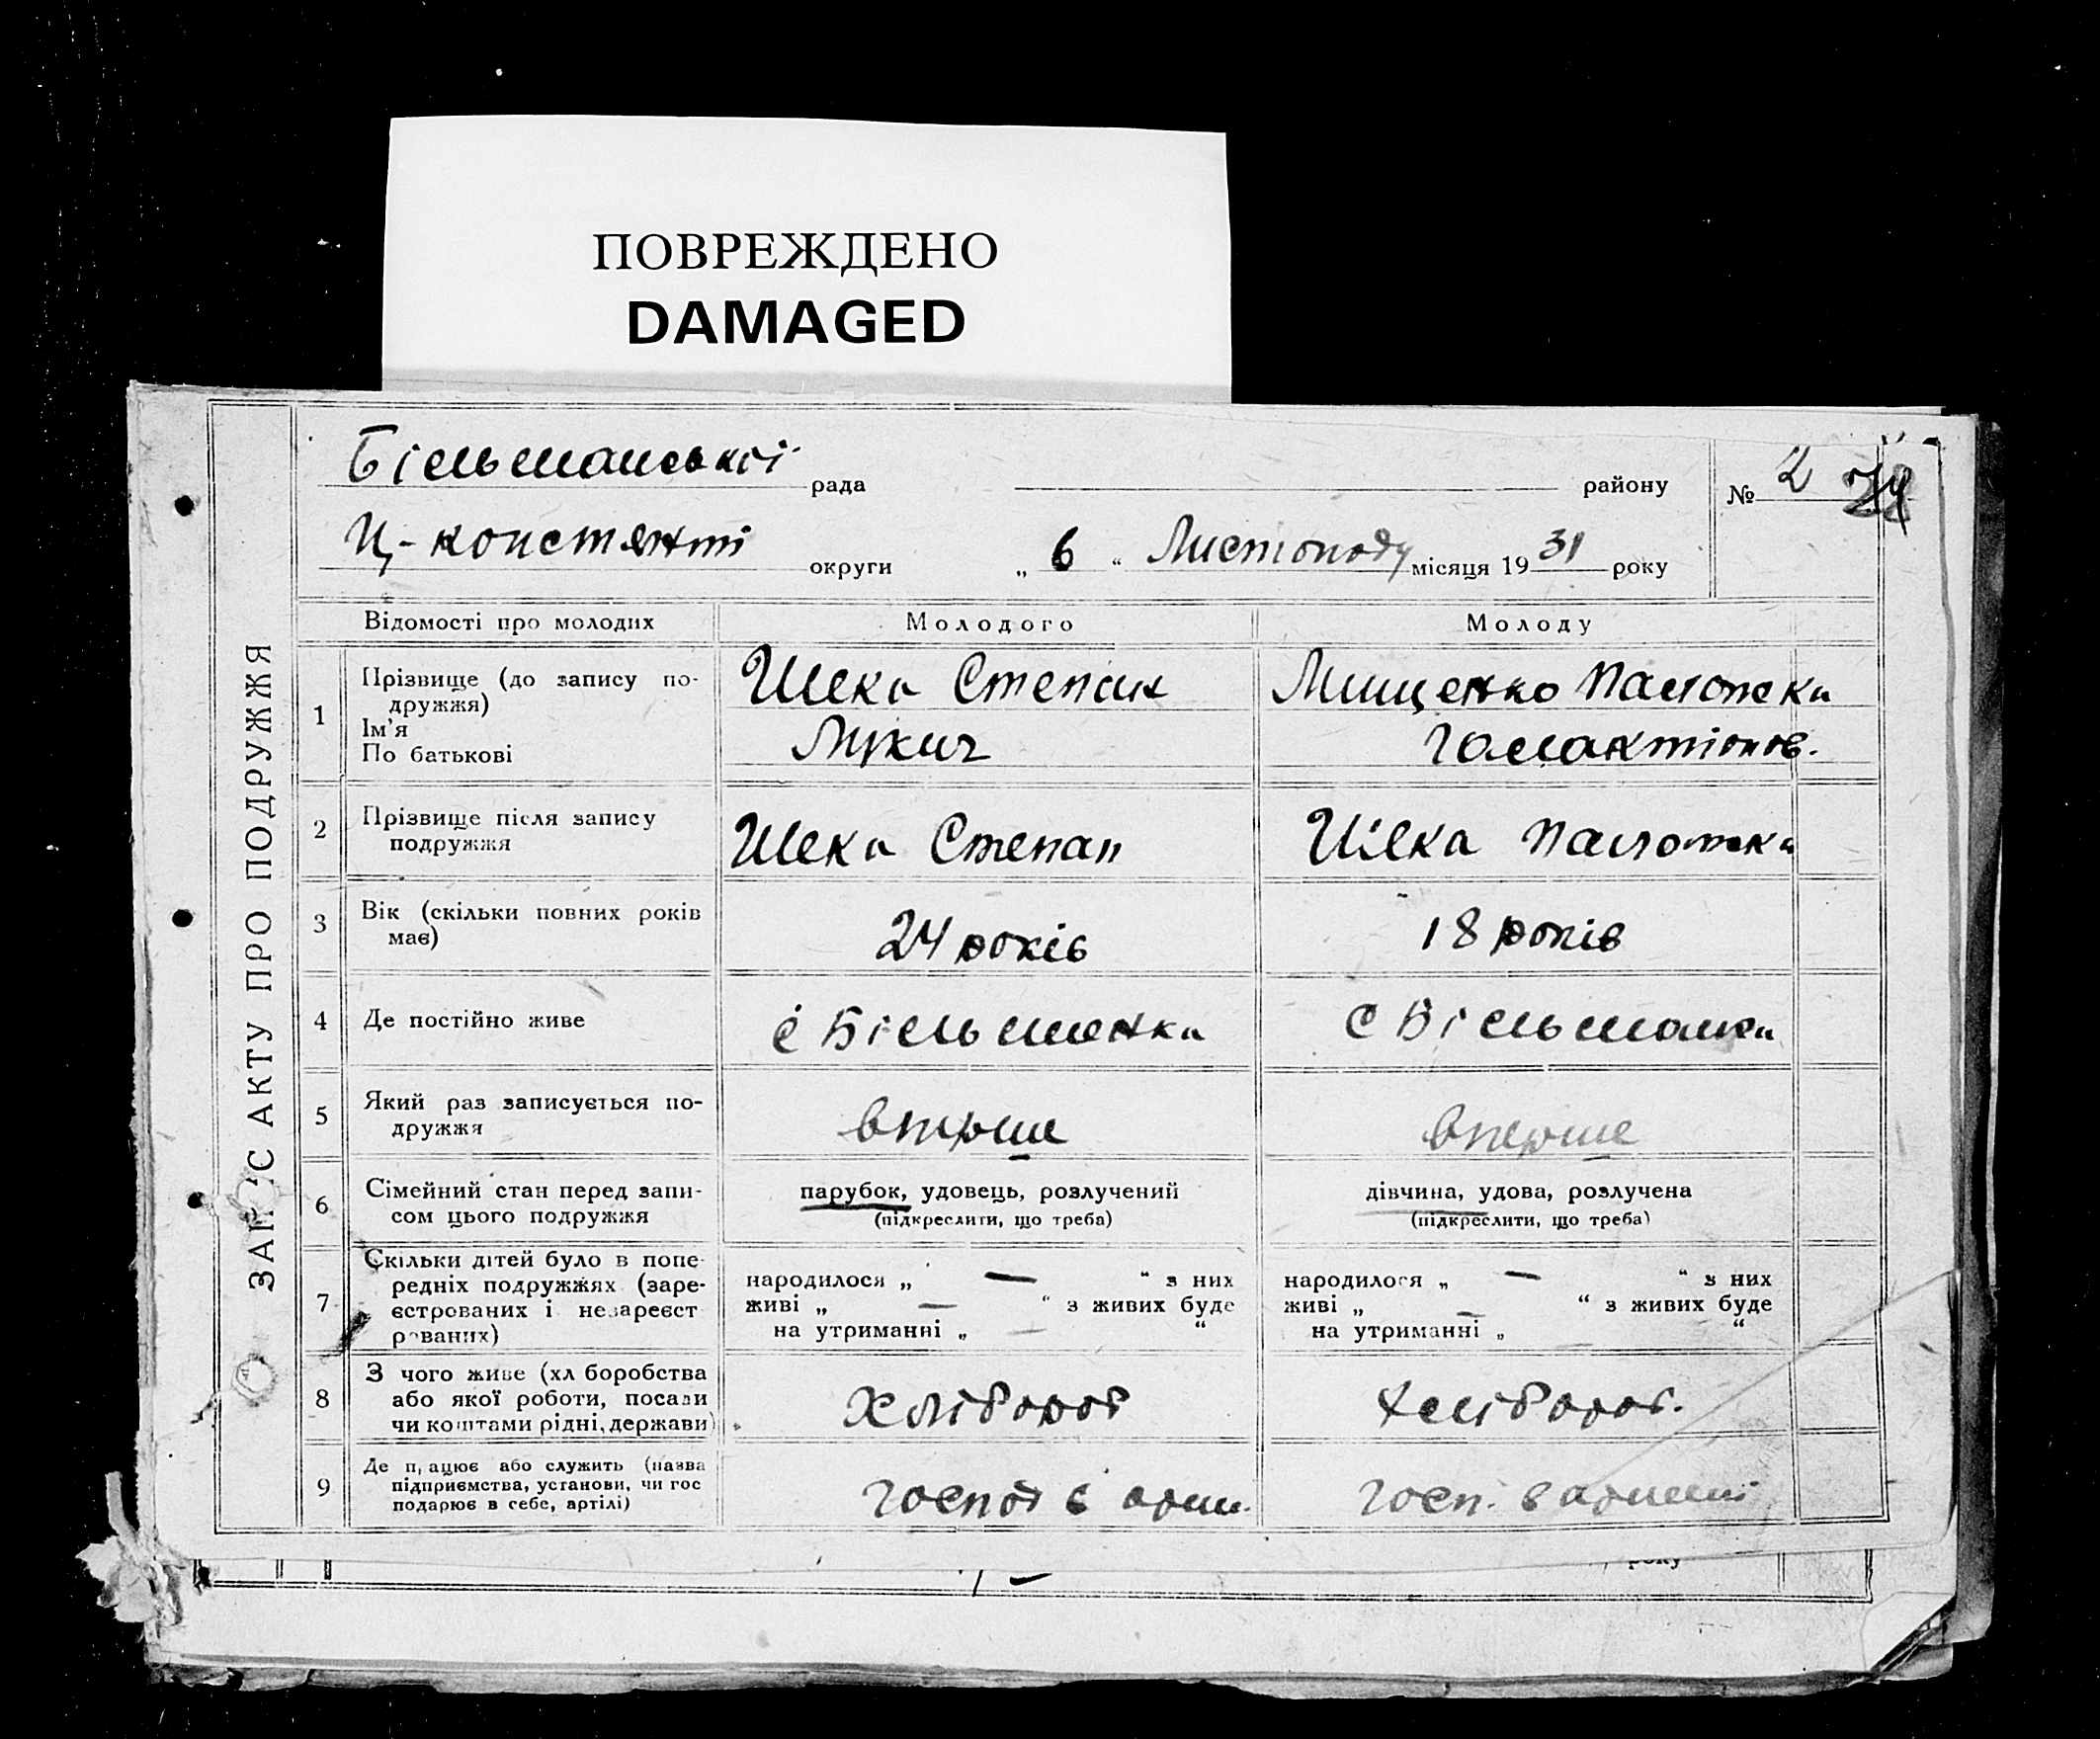 ПОВРЕЖДЕНО
DAMAGED
ЗАПИС АКТУ ПРО ПОДРУЖЖЯ
Більманської рада району № 2
Ц-констянті округи „ 6 “ Листопаду місяця 1931 року
Відомості про молодих Молодого Молоду
1 Прізвище (до запису по-
дружжя)
Ім'я
По батькові
Шека Степан
Лукич
Мищенко Палошка
Галактіонов.
2 Прізвище після запису
подружжя
Шека Степан
Шека Палошка
3 Вік (скільки повних років
має)
24 років
18 років
4 Де постійно живе
с Більманка
с Більманка
5 Який раз записується по-
дружжя
вперше
вперше
6 Сімейний стан перед запи-
сом цього подружжя
парубок, удовець, розлучений
(підкреслити, що треба)
дівчина, удова, розлучена
(підкреслити, що треба)
7 Скільки дітей було в попе-
редніх подружжях (заре-
єстрованих і незареєст
рованих)
народилося „ — “ з них
живі „ — “ з живих буде
на утриманні „ — “
народилося „ — “ з них
живі „ — “ з живих буде
на утриманні „ — “
8 З чого живе (хл боробства
або якої роботи, посади
чи коштами рідні, держави)
Хлібороб
Хлібороб.
9 Де працює або служить (назва
підприємства, установи, чи гос
подарює в себе, артілі)
господ в арт.
госп. в артілі
року